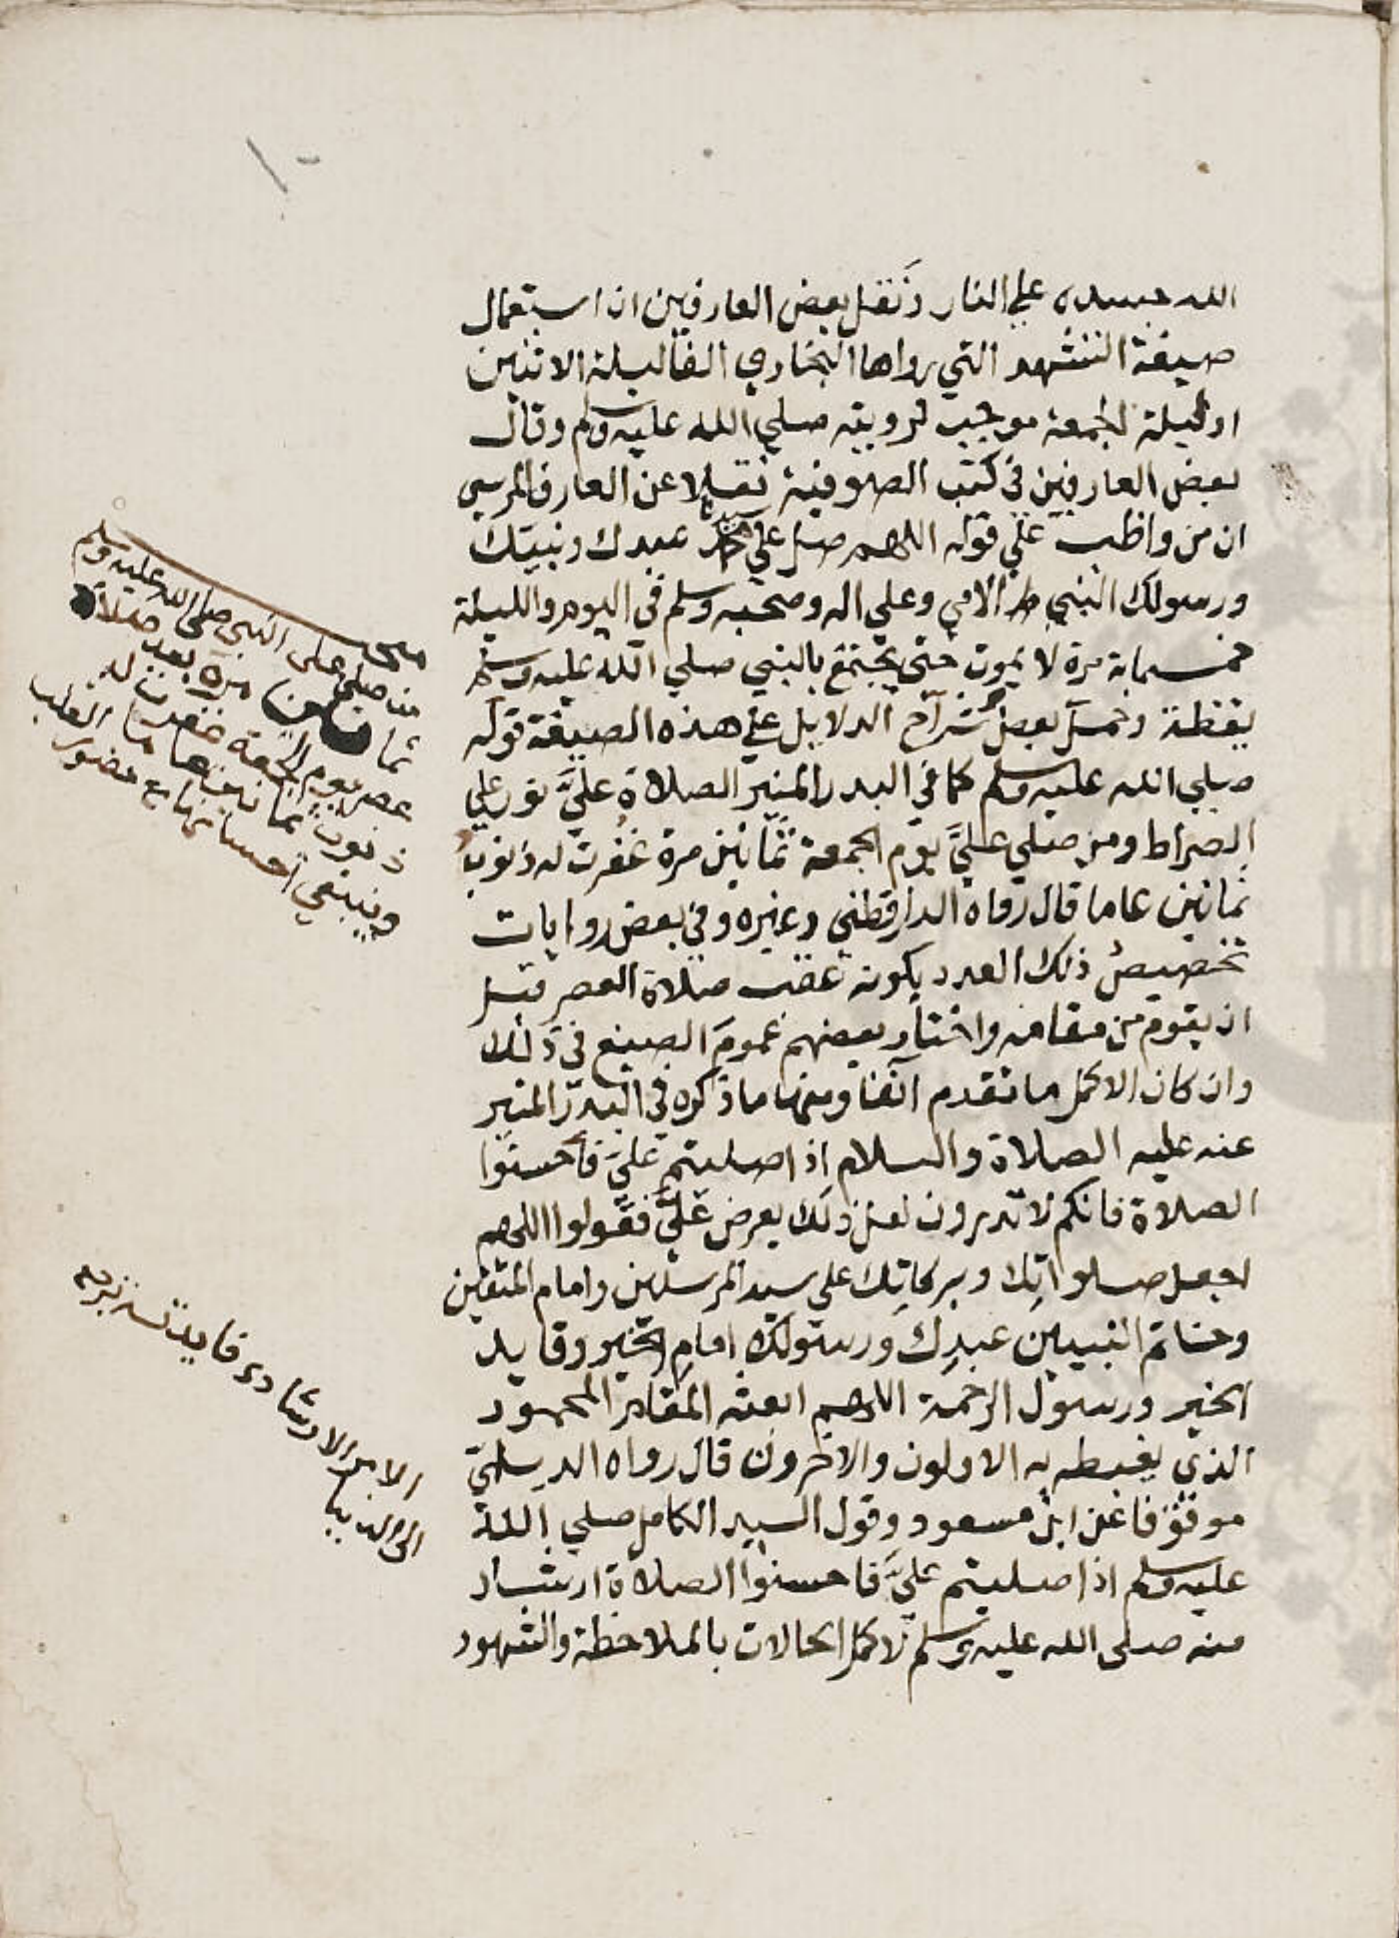 الله جسده علي النار ونقل بعض العارفين ان استعمال
صيغة التشهد التي رواها البخاري الفا ليلة الاثنين
او ليلة الجمعة موجب لرويته صلي الله عليه وسلم وقال
بعض العارفين في كتب الصوفية نقلا عن العارف المرسي
ان من واظب علي قوله اللهم صل علي سيدنا محمد عبدك ونبيك
ورسولك النبي الامي وعلي اله وصحبه وسلم في اليوم والليلة
خمسماية مرة لا يموت حتي يجتمع بالنبي صلي الله عليه وسلم
يقظة وحمل بعض شراح الدلايل علي هذه الصيغة قوله
صلي الله عليه وسلم كما في البدر المنير الصلاة عليَّ نور علي
الصراط ومن صلي عليَّ يوم الجمعة ثمانين مرة غفرت له ذنوب
ثمانين عاما قال رواه الدارقطني وغيره وفي بعض روايات
تخصيص ذلك العدد بكونه عقب صلاة العصر قبل
ان يقوم من مقامه واختار بعضهم عموم الصيغ في ذلك
وان كان الاكمل ما تقدم آنفا ومنها ما ذكره في البدر المنير
عنه عليه الصلاة والسلام اذا صليتم عليَّ فأحسنوا
الصلاة فانكم لا تدرون لعل ذلك يعرض عليَّ فقولوا اللهم
اجعل صلواتك وبركاتك علي سيد المرسلين وامام المتقين
وخاتم النبيين عبدك ورسولك امام الخير وقايد
الخير ورسول الرحمة اللهم ابعثه المقام المحمود
الذي يغبطه به الاولون والاخرون قال رواه الديلمي
موقوفا عن ابن مسعود وقول السيد الكامل صلي الله
عليه وسلم اذا صليتم عليَّ فاحسنوا الصلاة ارشاد
منه صلي الله عليه وسلم لاكمل الحالات بالملاحظة والشهود
من صلي علي النبي صلي الله عليه وسلم
ثمانين مرة بعد صلاة
عصر يوم الجمعة غفرت له
ذنوب ثمانين
وينبغي احسانها مع حضور القلب
الامر الارشادي فايدته ترجع
الي الدنيا